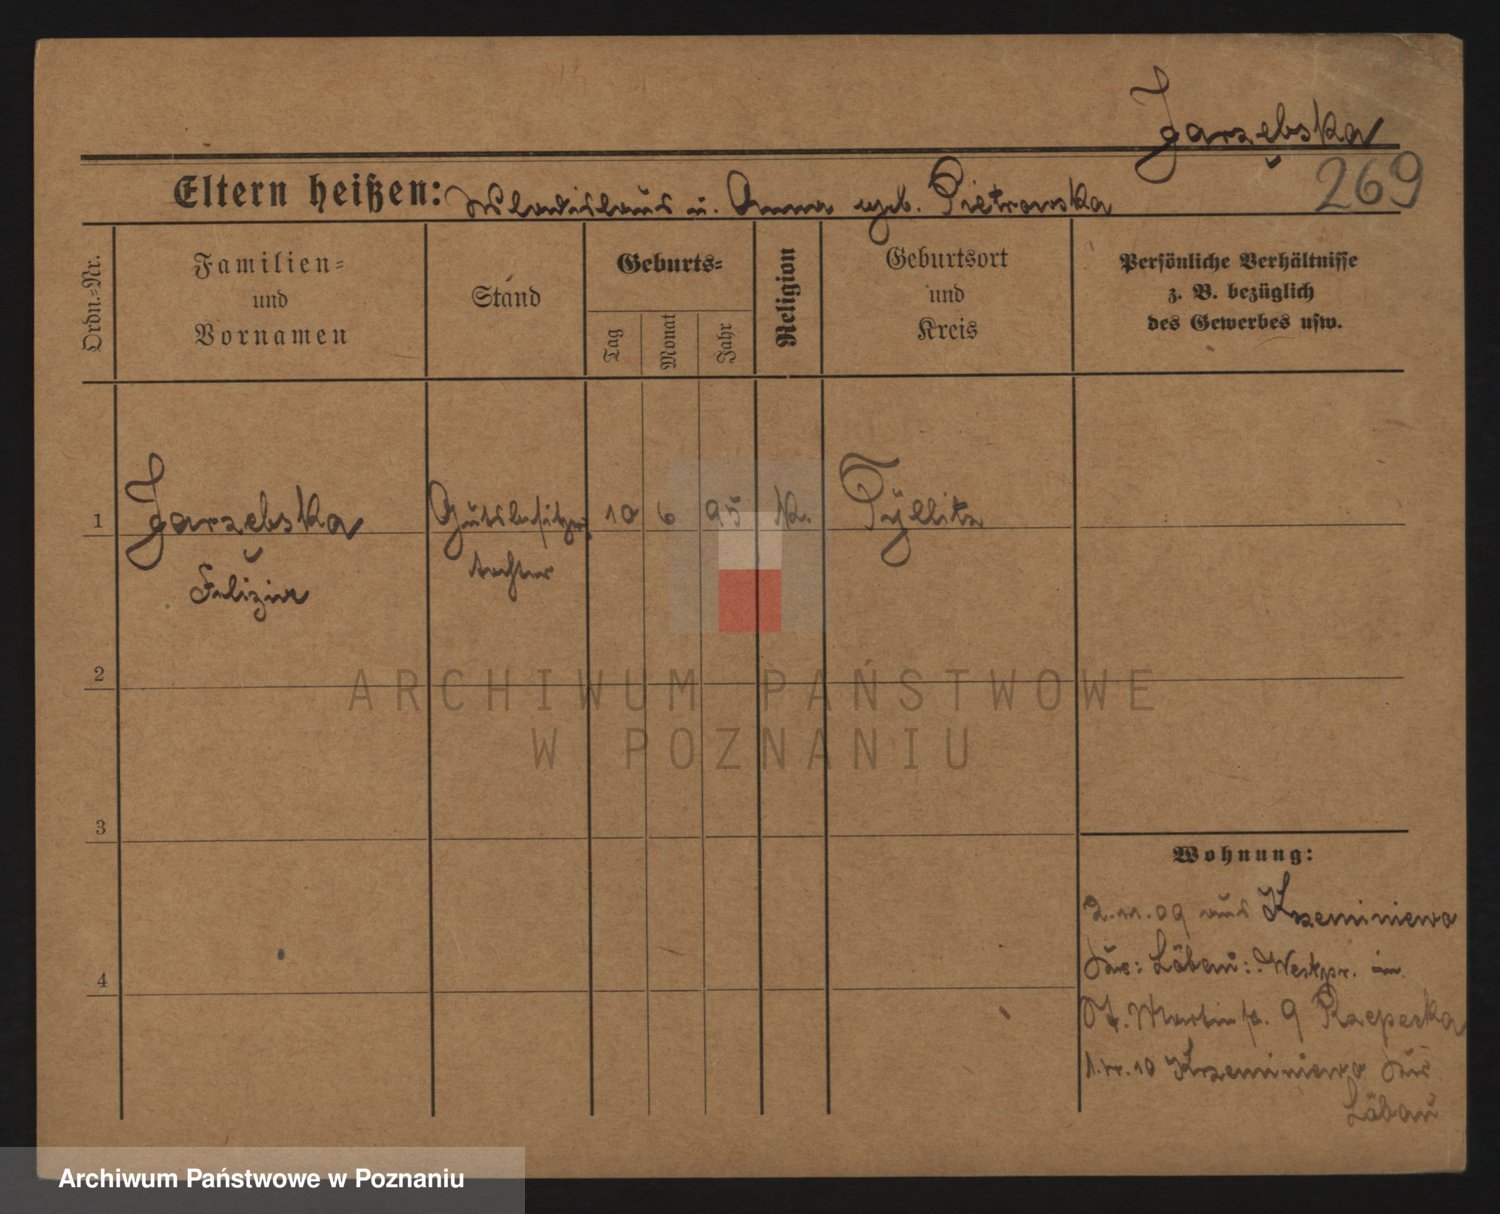 Jarzębska
269
Eltern heißen: Wladislaus u. Anna geb. Pietrowska
Ordn.-Nr.
Familien-
und
Vornamen
Stand
Geburts-
Tag
Monat
Jahr
Religion
Geburtsort
und
Kreis
Persönliche Verhältnisse
z. B. bezüglich
des Gewerbes usw.
1 Jarzębska Gutsbesitzer 10 6 95 K. Tyllitz
Felizia tochter
2
ARCHIWUM PAŃSTWOWE
W POZNANIU
3
Wohnung:
2.11.09 aus Krzeminiewo
Löbau: Westpr. in
St. Martinstr. 9 Rzepecka
4
10 Krzeminiewo
Löbau
Archiwum Państwowe w Poznaniu